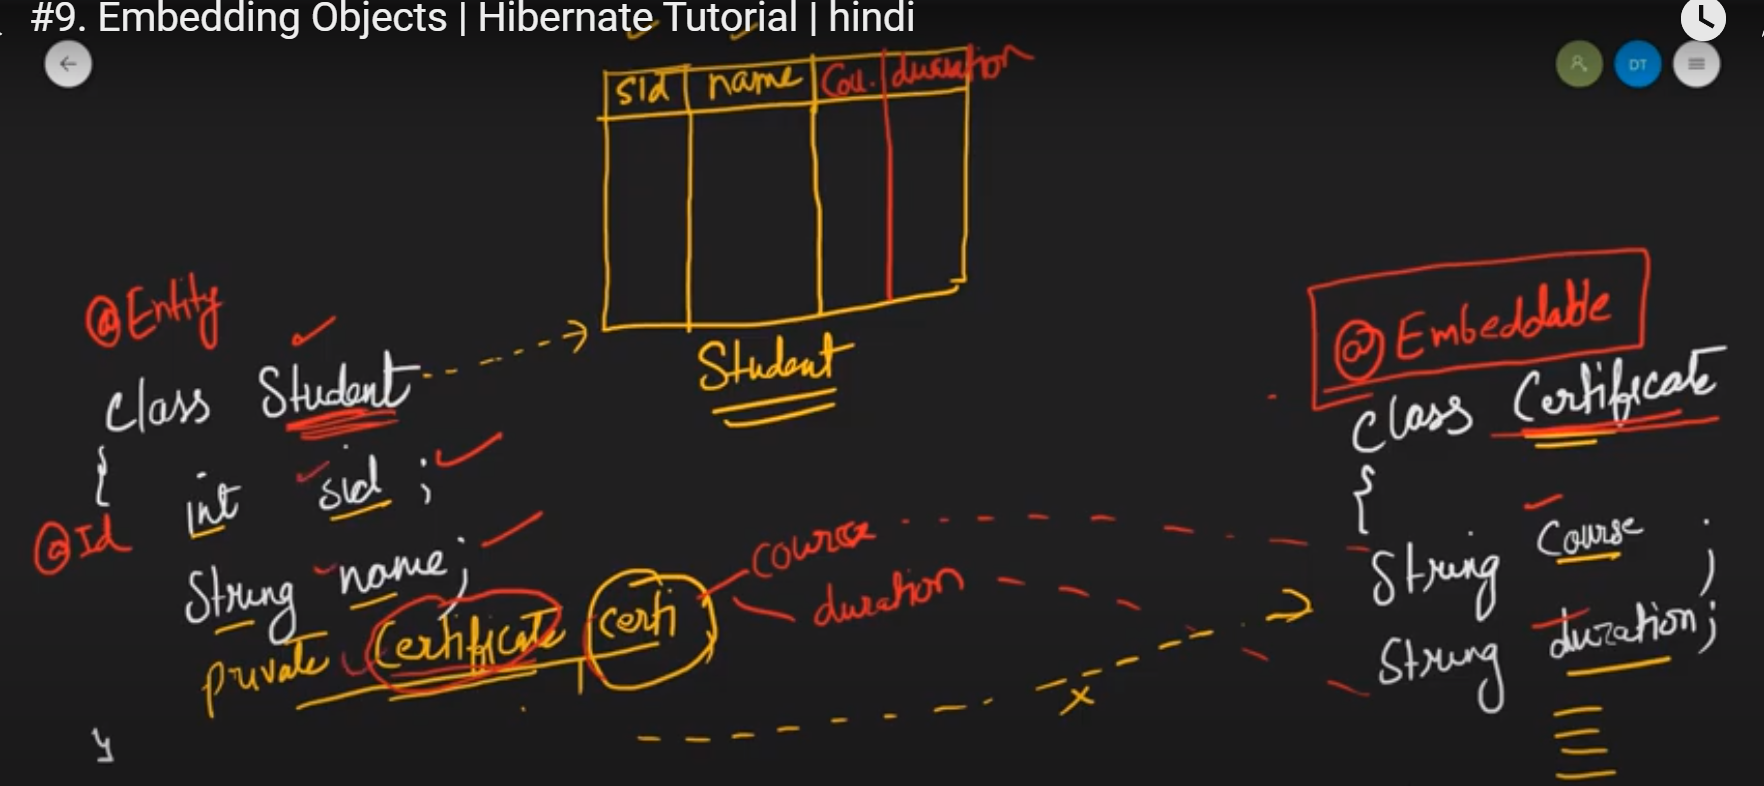 #9. Embedding Objects | Hibernate Tutorial | hindi
DT
sid name Cou. duration
Student
@Entity
class Student
{
@Id
int sid ;
String name;
private Certificate certi
course
duration
}
@Embeddable
class Certificate
{
String Course ;
String duration;
x